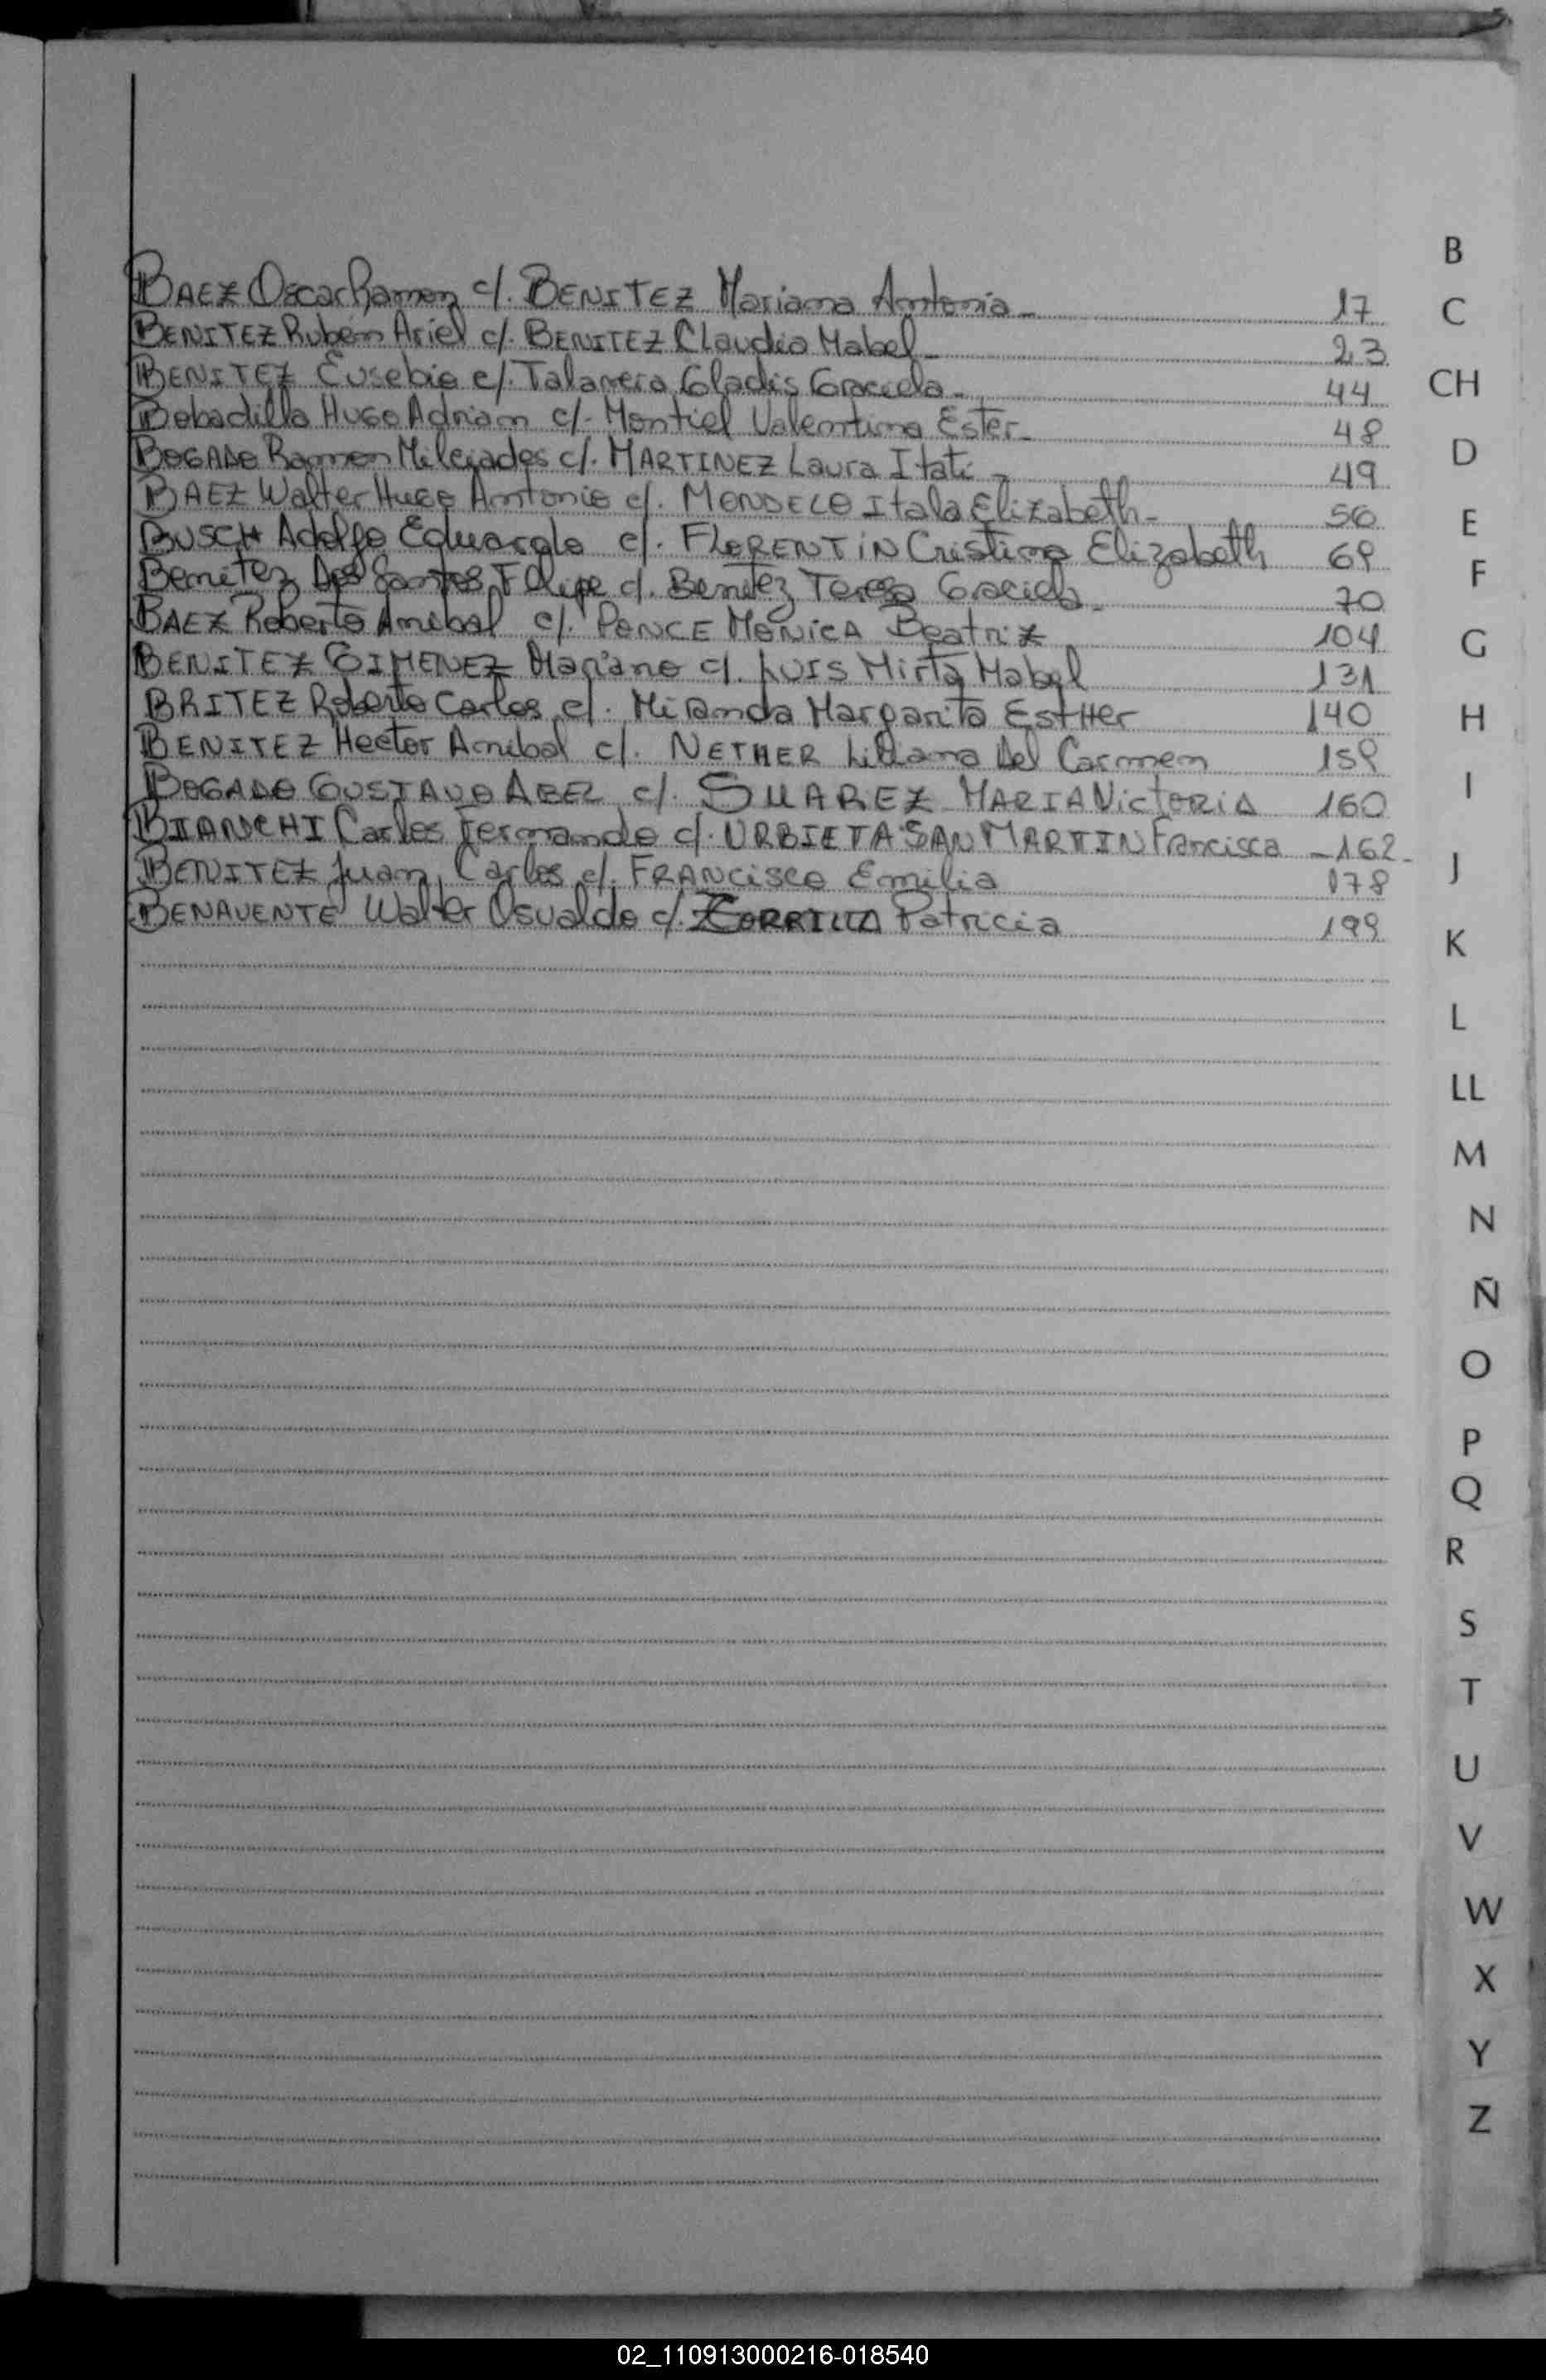 BAEZ Oscar Ramon c/. BENITEZ Mariana Antonia - 17
BENITEZ Rubén Ariel c/. BENITEZ Claudia Mabel - 23
BENITEZ Eusebio c/. Talavera Gladis Graciela - 44
Bobadilla HUGO Adrian c/. Montiel Valentina Ester - 48
BOGADO Ramon Milciades c/. MARTINEZ Laura Itati - 49
BAEZ Walter Hugo Antonio c/. MONDELO Itala Elizabeth - 56
BUSCH Adolfo Eduardo c/. FLORENTIN Cristina Elizabeth 69
Benitez Dos Santos Felipe c/. Benitez Teresa Graciela - 70
BAEZ Roberto Anibal c/. PONCE MONICA Beatriz 104
BENITEZ GIMENEZ Mariano c/. LUIS Mirta Mabel 131
BRITEZ Roberto Carlos c/. Miranda Margarita EstHer 140
BENITEZ Hector Anibal c/. NETHER Liliana Del Carmen 159
BOGADO GUSTAVO ABEL c/. SUAREZ MARIA Victoria 160
BIANCHI Carlos Fernando c/. URBIETA SAN MARTIN Francisca - 162 -
BENITEZ Juan Carlos c/. FRANCISCO Emilia 178
BENAVENTE Walter Osvaldo c/. ZORRILLA Patricia 199
B
C
CH
D
E
F
G
H
I
J
K
L
LL
M
N
Ñ
O
P
Q
R
S
T
U
V
W
X
Y
Z
02_110913000216-018540